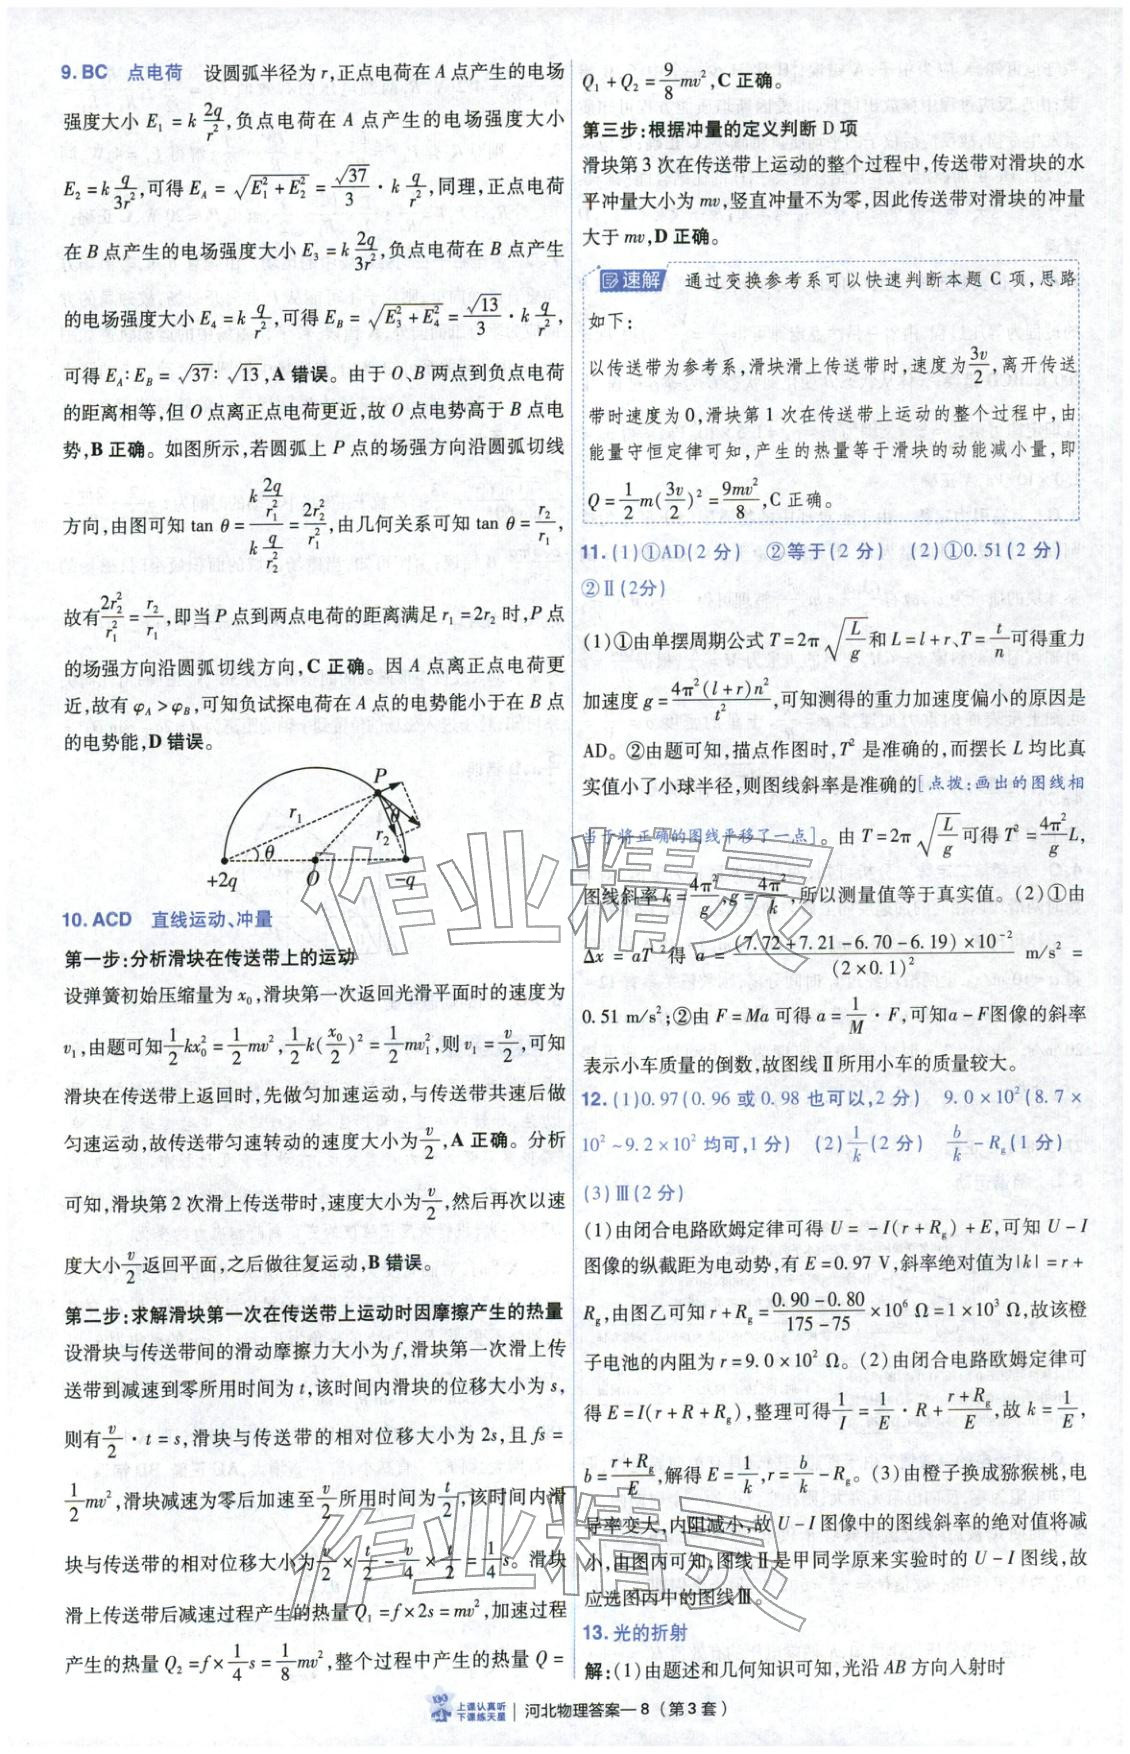 9. BC　点电荷　设圆弧半径为 r,正点电荷在 A 点产生的电场
强度大小 E₁ = k 2q/r²,负点电荷在 A 点产生的电场强度大小
E₂ = k q/3r²,可得 E_A = √(E₁² + E₂²) = √37/3 · k q/r²,同理,正点电荷
在 B 点产生的电场强度大小 E₃ = k 2q/3r²,负点电荷在 B 点产生
的电场强度大小 E₄ = k q/r²,可得 E_B = √(E₃² + E₄²) = √13/3 · k q/r²,
可得 E_A∶E_B = √37∶√13,A 错误。由于 O、B 两点到负点电荷
的距离相等,但 O 点离正点电荷更近,故 O 点电势高于 B 点电
势,B 正确。如图所示,若圆弧上 P 点的场强方向沿圆弧切线
方向,由图可知 tan θ = (k 2q/r₁²)/(k q/r₂²) = 2r₂²/r₁²,由几何关系可知 tan θ = r₂/r₁,
故有 2r₂²/r₁² = r₂/r₁,即当 P 点到两点电荷的距离满足 r₁ = 2r₂ 时,P 点
的场强方向沿圆弧切线方向,C 正确。因 A 点离正点电荷更
近,故有 φ_A > φ_B,可知负试探电荷在 A 点的电势能小于在 B 点
的电势能,D 错误。
P
r₁
θ
r₂
θ
+2q
O
-q
10. ACD　直线运动、冲量
第一步:分析滑块在传送带上的运动
设弹簧初始压缩量为 x₀,滑块第一次返回光滑平面时的速度为
v₁,由题可知 1/2 kx₀² = 1/2 mv²,1/2 k(x₀/2)² = 1/2 mv₁²,则 v₁ = v/2,可知
滑块在传送带上返回时,先做匀加速运动,与传送带共速后做
匀速运动,故传送带匀速转动的速度大小为 v/2,A 正确。分析
可知,滑块第 2 次滑上传送带时,速度大小为 v/2,然后再次以速
度大小 v/2 返回平面,之后做往复运动,B 错误。
第二步:求解滑块第一次在传送带上运动时因摩擦产生的热量
设滑块与传送带间的滑动摩擦力大小为 f,滑块第一次滑上传
送带到减速到零所用时间为 t,该时间内滑块的位移大小为 s,
则有 v/2 · t = s,滑块与传送带的相对位移大小为 2s,且 fs =
1/2 mv²,滑块减速为零后加速至 v/2 所用时间为 t/2,该时间内滑
块与传送带的相对位移大小为 v/2 × t/2 − v/4 × t/2 = 1/4 s。滑块
滑上传送带后减速过程产生的热量 Q₁ = f × 2s = mv²,加速过程
产生的热量 Q₂ = f × 1/4 s = 1/8 mv²,整个过程中产生的热量 Q =
Q₁ + Q₂ = 9/8 mv²,C 正确。
第三步:根据冲量的定义判断 D 项
滑块第 3 次在传送带上运动的整个过程中,传送带对滑块的水
平冲量大小为 mv,竖直冲量不为零,因此传送带对滑块的冲量
大于 mv,D 正确。
速解　通过变换参考系可以快速判断本题 C 项,思路
如下:
以传送带为参考系,滑块滑上传送带时,速度为 3v/2,离开传送
带时速度为 0,滑块第 1 次在传送带上运动的整个过程中,由
能量守恒定律可知,产生的热量等于滑块的动能减小量,即
Q = 1/2 m(3v/2)² = 9mv²/8,C 正确。
11. (1)①AD(2 分)　②等于(2 分)　(2)①0.51(2 分)
②Ⅱ(2分)
(1)①由单摆周期公式 T = 2π√(L/g) 和 L = l + r,T = t/n 可得重力
加速度 g = 4π²(l + r)n²/t²,可知测得的重力加速度偏小的原因是
AD。②由题可知,描点作图时,T² 是准确的,而摆长 L 均比真
实值小了小球半径,则图线斜率是准确的[点拨:画出的图线相
当于将正确的图线平移了一点]。由 T = 2π√(L/g) 可得 T² = 4π²/g L,
图线斜率 k = 4π²/g,g = 4π²/k,所以测量值等于真实值。(2)①由
Δx = aT² 得 a = (7.72 + 7.21 − 6.70 − 6.19) × 10⁻²/(2 × 0.1)² m/s² =
0.51 m/s²;②由 F = Ma 可得 a = 1/M · F,可知 a − F 图像的斜率
表示小车质量的倒数,故图线Ⅱ所用小车的质量较大。
12. (1)0.97(0.96 或 0.98 也可以,2 分)　9.0 × 10²(8.7 ×
10² ~ 9.2 × 10² 均可,1 分)　(2)1/k(2 分)　b/k − R_g(1 分)
(3)Ⅲ(2 分)
(1)由闭合电路欧姆定律可得 U = − I(r + R_g) + E,可知 U − I
图像的纵截距为电动势,有 E = 0.97 V,斜率绝对值为|k| = r +
R_g,由图乙可知 r + R_g = (0.90 − 0.80)/(175 − 75) × 10⁶ Ω = 1 × 10³ Ω,故该橙
子电池的内阻为 r = 9.0 × 10² Ω。(2)由闭合电路欧姆定律可
得 E = I(r + R + R_g),整理可得 1/I = 1/E · R + (r + R_g)/E,故 k = 1/E,
b = (r + R_g)/E,解得 E = 1/k,r = b/k − R_g。(3)由橙子换成猕猴桃,电
导率变大,内阻减小,故 U − I 图像中的图线斜率的绝对值将减
小,由图丙可知,图线Ⅱ是甲同学原来实验时的 U − I 图线,故
应选图丙中的图线Ⅲ。
13. 光的折射
解:(1)由题述和几何知识可知,光沿 AB 方向入射时
上课认真听
下课练天星
河北物理答案—8(第 3 套)
作业精灵
作业精灵